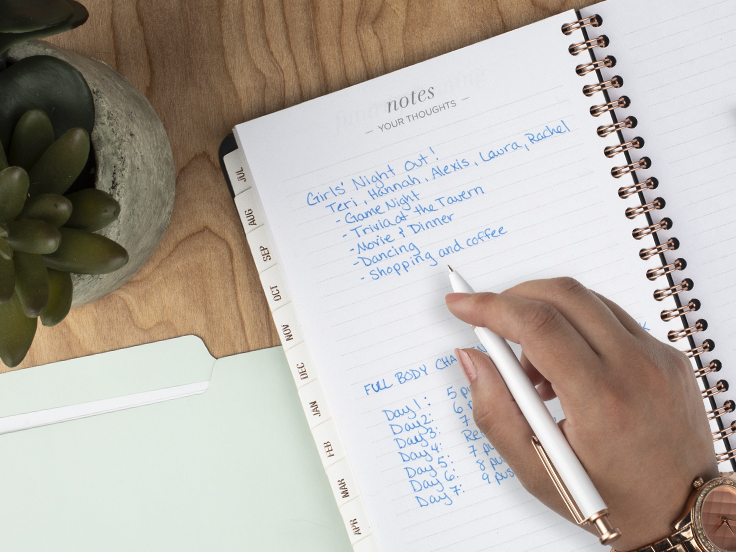 notes
— YOUR THOUGHTS —
Girls' Night Out!
Teri, Hannah, Alexis, Laura, Rachel
- Game Night
- Trivia at the Tavern
- Movie & Dinner
- Dancing
- Shopping and coffee
FULL BODY CHA
Day 1: 5 pu
Day 2: 6
Day 3: 7
Day 4: Re
Day 5: 7 pu
Day 6: 8 pu
Day 7: 9 pus
JUL
AUG
SEP
OCT
NOV
DEC
JAN
FEB
MAR
APR